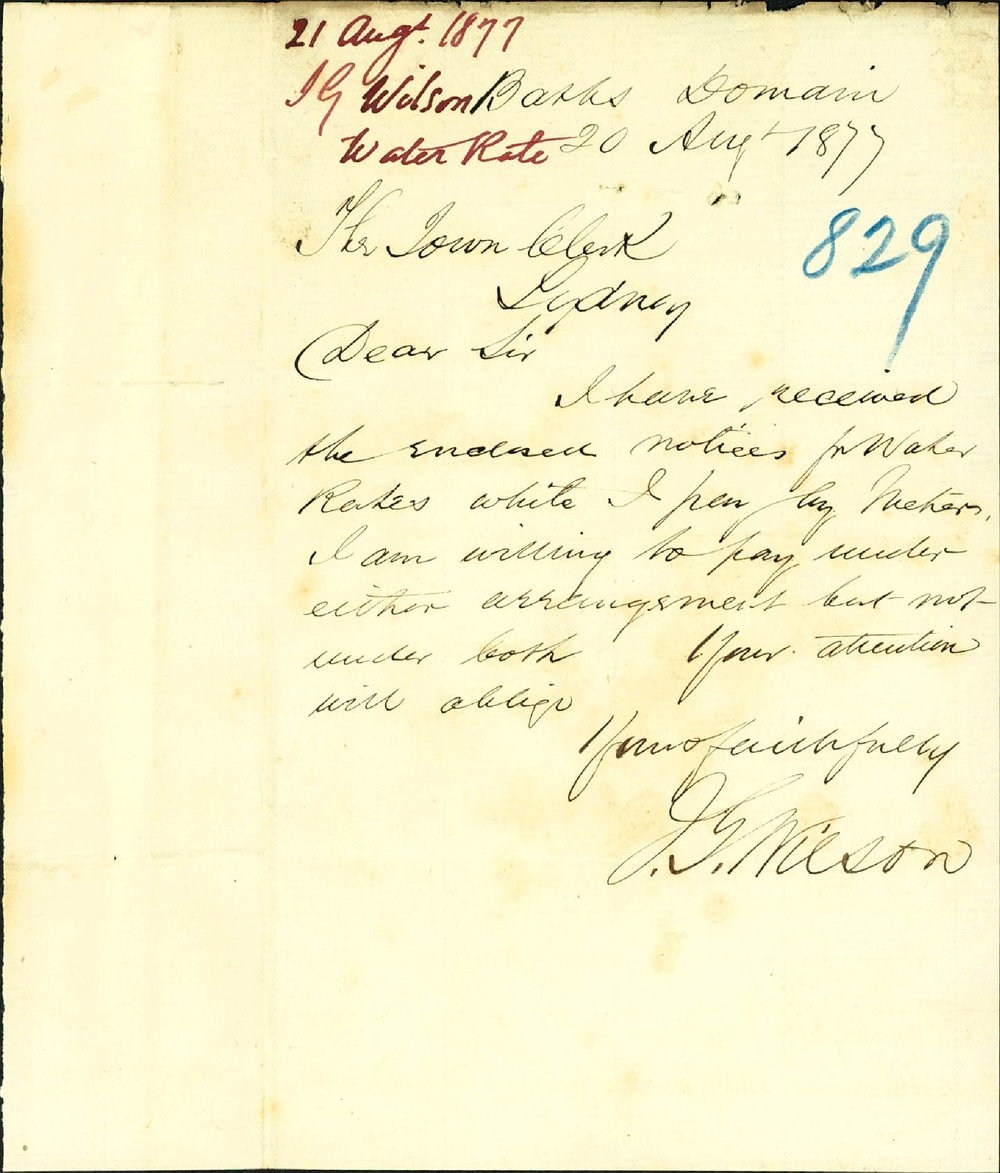 21 Augt. 1877
J G Wilson
Water Rate
Baths Domain
20 Augt 1877
829
The Town Clerk
Sydney
Dear Sir
I have received
the enclosed notices for Water
Rates while I pay by Meter.
I am willing to pay under
either arrangement but not
under both Your attention
will oblige
Yours faithfully
J. G. Wilson